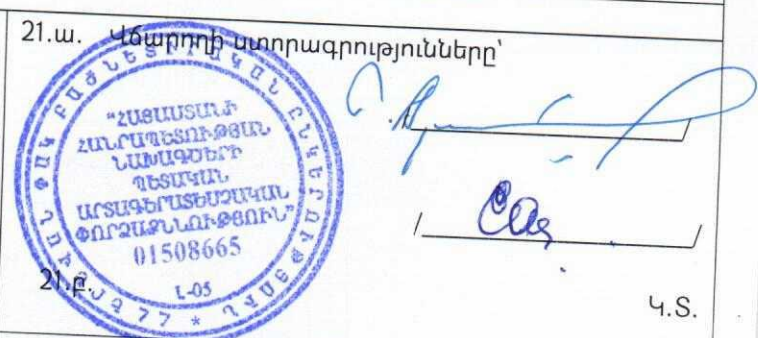 21.ա. Վճարողի ստորագրությունները՝
ՓԱԿ ԲԱԺՆԵՏԻՐԱԿԱՆ ԸՆԿԵՐՈՒԹՅՈՒՆ
"ՀԱՅԱՍՏԱՆԻ
ՀԱՆՐԱՊԵՏՈՒԹՅԱՆ
ՆԱԽԱԳԾԵՐԻ
ՊԵՏԱԿԱՆ
ԱՐՏԱԳԵՐԱՏԵՍՉԱԿԱՆ
ՓՈՐՁԱՔՆՆՈՒԹՅՈՒՆ"
01508665
L-05
21.բ.
Կ.Տ.